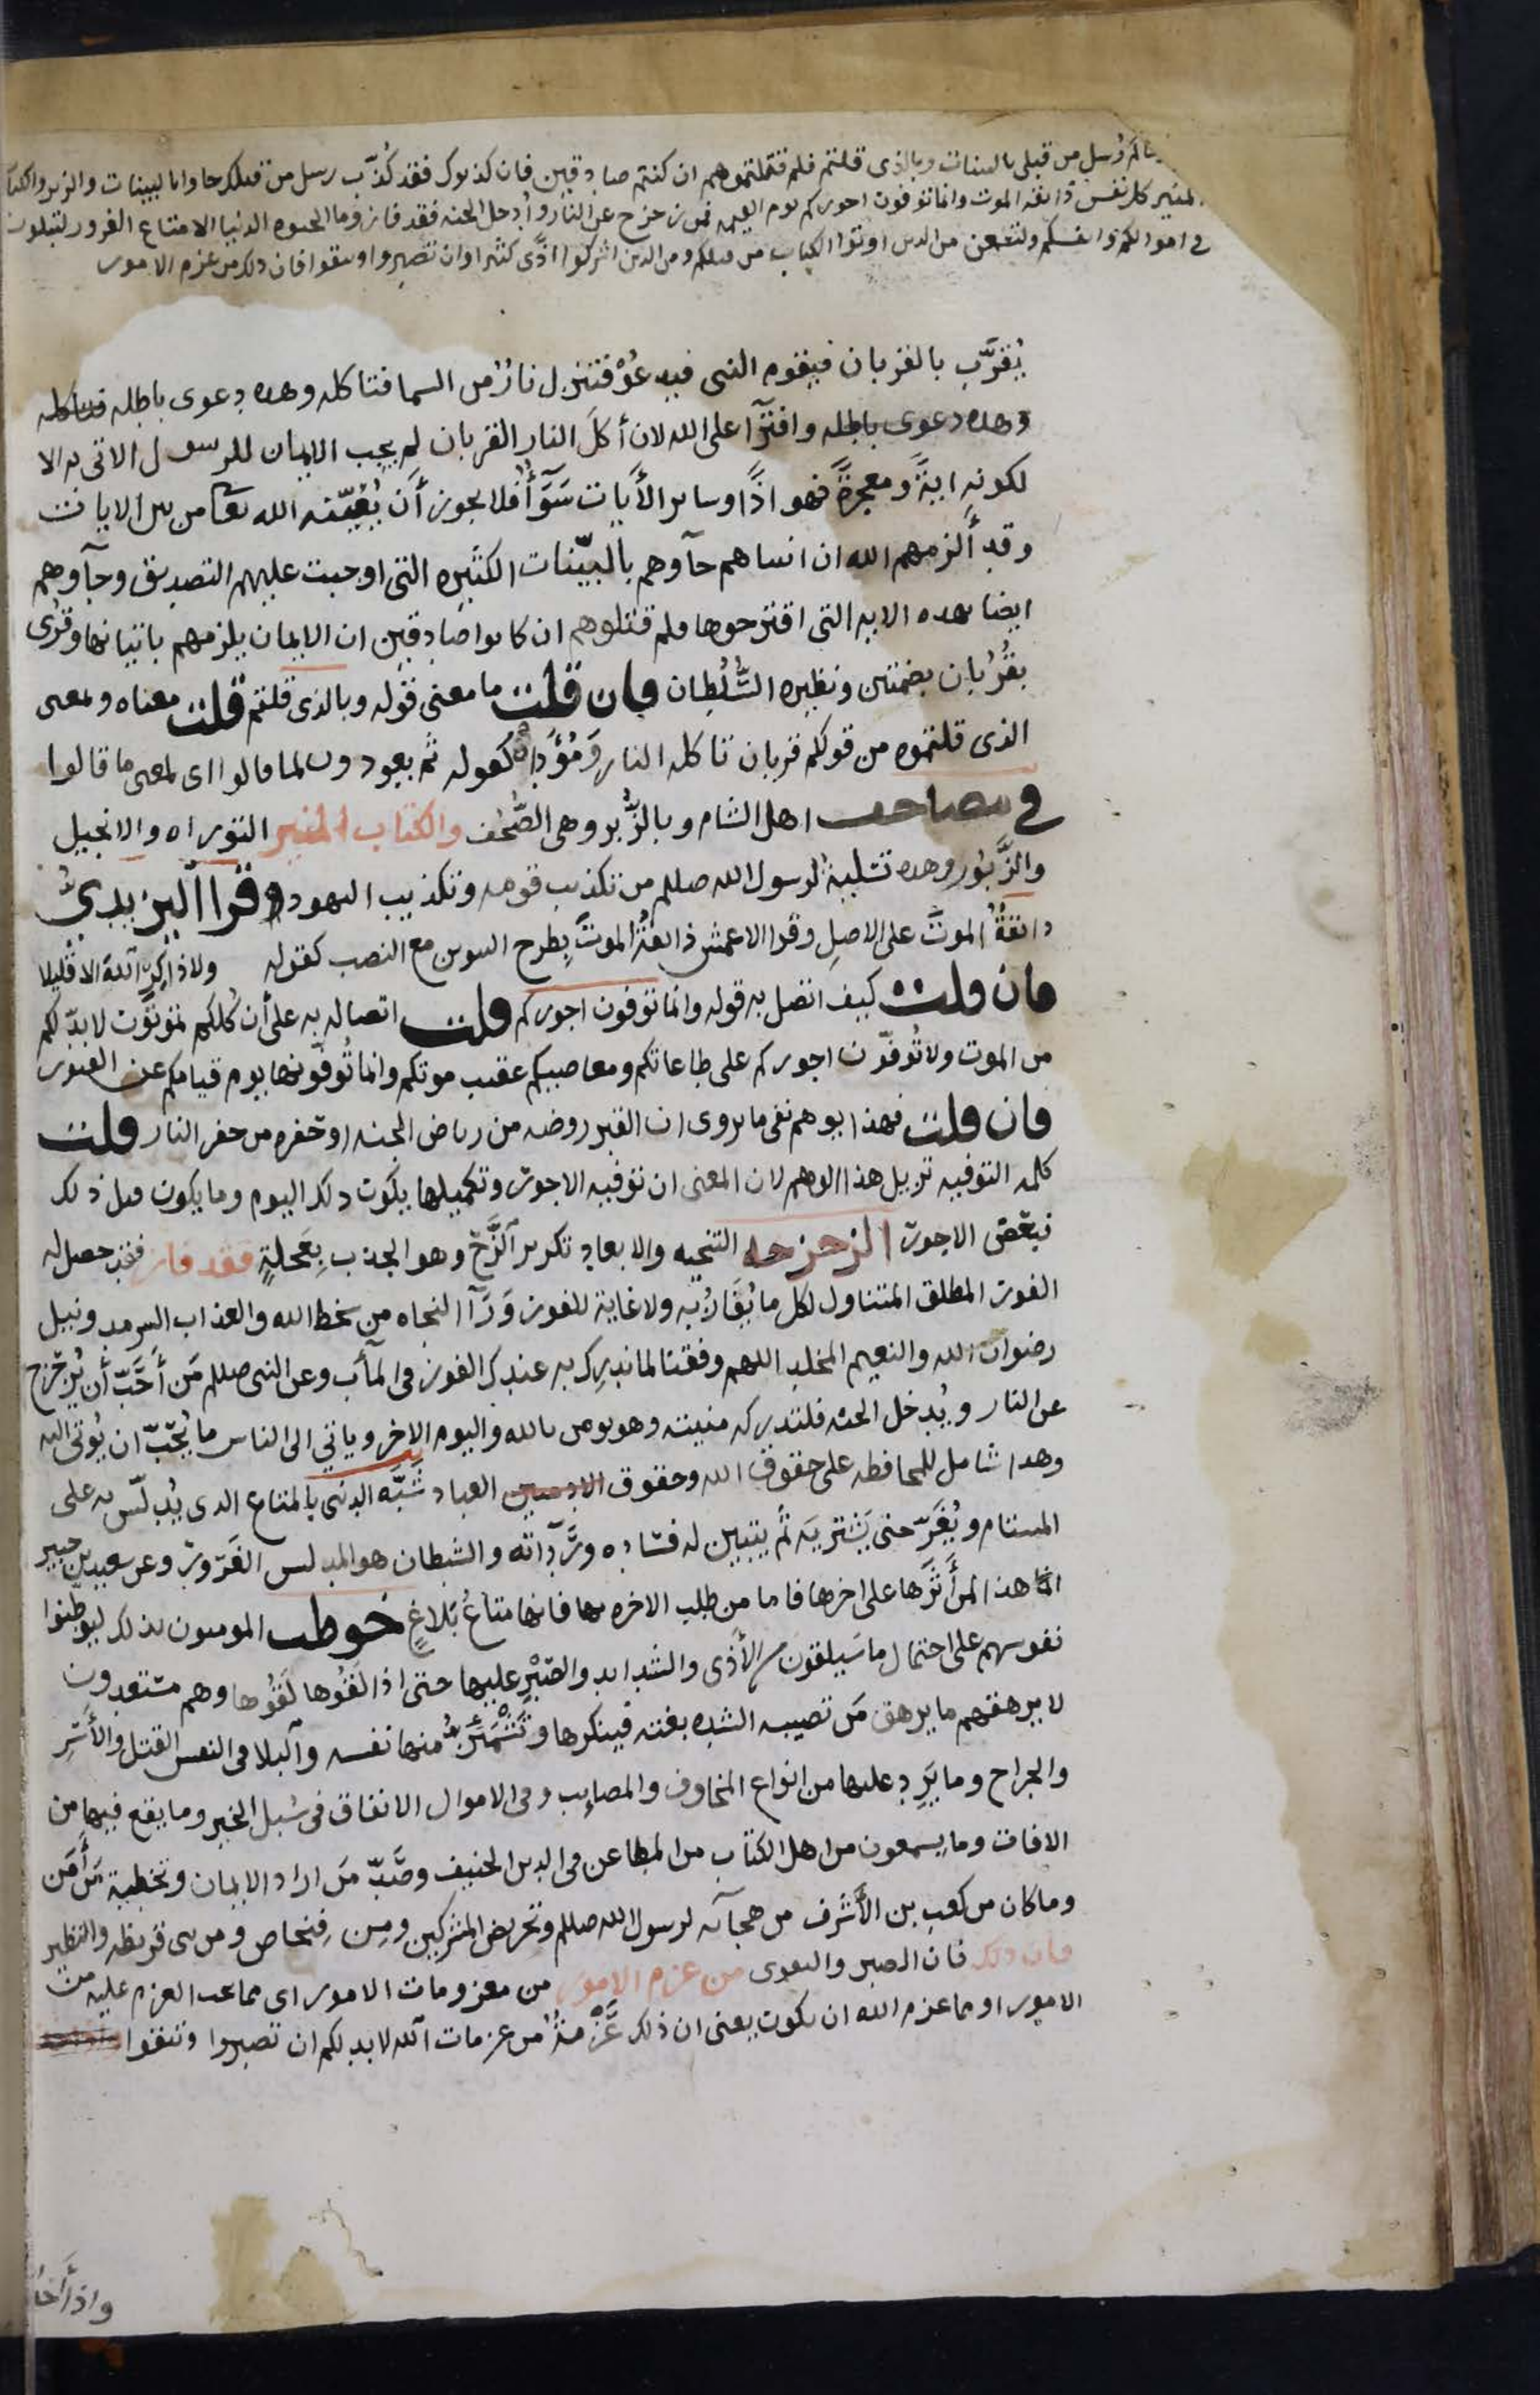 رسل من قبلى بالبينات وبالذى قلتم فلم قتلتموهم ان كنتم صادقين فان كذبوك فقد كذّب رسل من قبلك جاوا بالبينات والزبر والكتاب
المنير كل نفس ذائقه الموت وانما توفون اجوركم يوم القيمه فمن زحزح عن النار وأدخل الجنه فقد فاز وما الحيوه الدنيا الا متاع الغرور لتبلون
فى اموالكم وانفسكم ولتسمعن من الذين اوتوا الكتاب من قبلكم ومن الذين اشركوا اذًى كثيرا وان تصبروا وتتقوا فان ذلك من عزم الامور
يُقرَّب بالقربان فيقوم النبى فيدعُوْ فتنزل نارٌ من السما فتاكله وهده دعوى باطله
وهده دعوى باطله وافترآ على الله لان أكلَ النارِ القربان لم يجب الايمان للرسول الاتى به الا
لكونه ايةً ومعجزةً فهو اذًا وساير الأيات سَوَآءٌ فلا يجوز أن يُعيّنه الله تعا من بين الايات
وقد ألزمهم الله ان انبياهم جآوهم بالبيّنات الكثيره التى اوجبت عليهم التصديق وجآوهم
ايضا بهده الايه التى اقترحوها فلم قتلوهم ان كانوا صادقين ان الايمان يلزمهم باتيانها وقرى
بقُرُبان بضمتين ونظيره السُّلُطان فان قلت ما معنى قوله وبالذى قلتم قلت معناه وبمعنى
الذى قلتموه من قولكم قربان تاكله النار وَمُؤَدّاه كقوله ثم يعودون لما قالوا اى لمعنى ما قالوا
فى مصاحف اهل الشام وبالزُّبر وهى الصُّحُف والكتاب المنير التوراه والانجيل
والزَّبُور وهده تسلية لرسول الله صللم من تكذيب قومه وتكذيب اليهود وقرا اليزيدىُّ
ذائقةٌ الموتَ على الاصلِ وقرا الاعمش ذائقةُ الموتَ بِطرح التنوين مع النصب كقوله ولا ذاكرَ اللهَ الا قليلا
فان قلت كيف اتصل به قوله وانما توفون اجوركم قلت اتصاله به على أن كلكم تموتون لا بدّ لكم
من الموت ولا تُوفّون اجوركم على طاعاتكم ومعاصيكم عقيب موتكم وانما تُوفّونها يوم قيامكم عن القبور
فان قلت فهذا يوهم نفى ما يروى ان القبر روضه من رياض الجنه او حفره من حفر النار قلت
كلمه التوفيه تزيل هذا الوهم لان المعنى ان توفيه الاجور وتكميلها يكون ذلك اليوم وما يكون قبل ذلك
فبعض الاجور الزحزحه التنحيه والابعاد تكرير الزَّحّ وهو الجذب بِعَجلةٍ فقد فاز فقد حصل له
الفوز المطلق المتناول لكل ما يُفَازُ به ولا غاية للفوز وَرَآ النجاه من سخط الله والعذاب السرمد ونيل
رضوان الله والنعيم المخلد اللهم وفقنا لما ندرك به عندك الفوز فى المآب وعن النبى صللم مَن أحَبَّ أن يُزحْزح
عن النار ويُدخل الجنه فلتدركه منيته وهو يومن بالله واليوم الاخر وياتي الى الناس ما يُحبّ ان يُوتى اليه
وهدا شامل للمحافظه على حقوق الله وحقوق العباد شَبَّه الدنيى بالمتاع الدى يُدلّس به على
المستام ويُغَرّ حتى يَشتريَه ثم يتبين له فسَاده ورَدَآته والشيطان هو المدلس الغَرّور وعن سعيد بن جبير
انما هذا لمن أثَرَها على اخرها فاما من طلب الاخره بها فانها متاعُ بَلاغٍ خوطب المومنون بدلك ليوطّنوا
نفوسهم على احتمال ما سَيلقون من الأذى والشدايد والصّبْرِ عليها حتى اذا لقُوها لَقُوها وهم مستعدون
لا يرهقهم ما يرهق مَن تصيبه الشده بغته فينكرها وتَشْمَئزُّ منها نفسه والبلا فى النفس القتل والأسْرِ
والجراح وما يَرِد عليها من انواع المخاوف والمصايب وفى الاموال الانفاق فى سُبل الخير وما يقع فيها من
الافات وما يسمعون من اهل الكتاب من المطاعن فى الدين الحنيف وصَّدّ مَن اراد الايمان وتخطية مَن أمَن
وما كان من كعب بن الأشرف من هجآيه لرسول الله صللم وتحريض المشركين ومِن فِنحاص ومن بنى قريظه والنظير
فان ذلك فان الصبر والتقوى من عزم الامور من معزومات الامور اى مما يجب العزم عليه من
الامور او مما عزم الله ان يكون يعنى ان ذلك عَزْمَةٌ من عزمات الله لابد لكم ان تصبروا وتتقوا
واذ أخذ